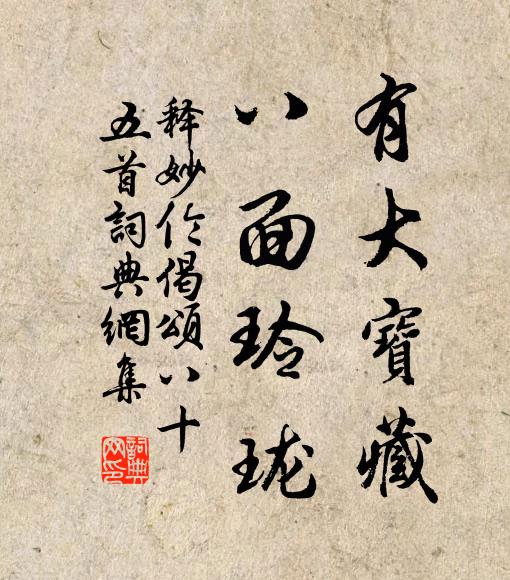 有大寶藏
八面玲珑
释妙伦偈頌八十
五首詞典網集
詞典
网印